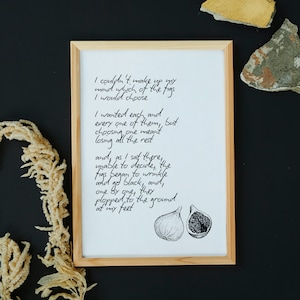 I couldn't make up my
mind which of the figs
I would choose
I wanted each and
every one of them, but
choosing one meant
losing all the rest
and, as I sat there,
unable to decide, the
figs began to wrinkle
and go black, and,
one by one, they
plopped to the ground
at my feet